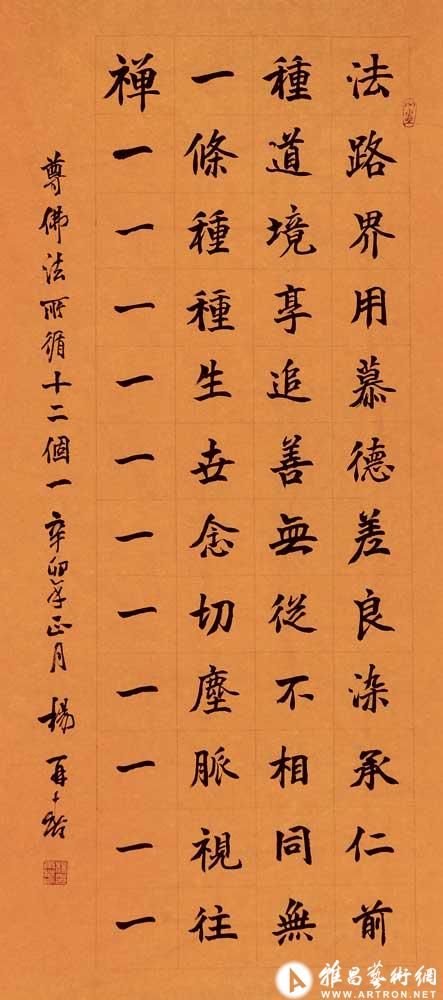 禅一種法
一條道路
一種境界
一種享用
一生追慕
一世善德
一念無差
一切從良
一塵不染
一脈相承
一視同仁
一往無前
尊佛法所循十二個一 辛卯年正月 楊再春
雅昌藝術網
WWW.ARTRON.NET